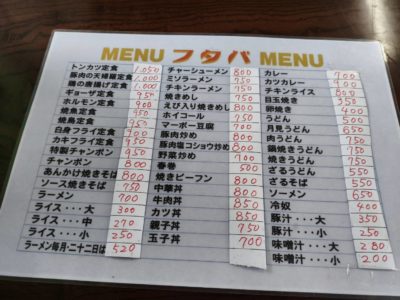 MENU フタバ MENU
トンカツ定食 1,050
豚肉の天婦羅定食 1,000
鶏の唐揚げ定食 1,000
ギョーザ定食 950
ホルモン定食 900
焼魚定食 950
焼魚定食 950
白身フライ定食 950
カキフライ定食 950
特製チャンポン 950
チャンポン 800
あんかけ焼きそば 800
ソース焼きそば 750
ラーメン 700
ライス・・・大 300
ライス・・・中 270
ライス・・・小 250
ラーメン毎月・二十二日は 520
チャーシューメン 800
ミソラーメン 800
チキンラーメン
焼きめし 700
えび入り焼きめし
ホイコール
マーボー豆腐 700
豚肉炒め 800
豚肉塩コショウ炒め 800
野菜炒め 700
春巻 500
焼きビーフン 800
中華丼 800
牛肉丼 850
カツ丼 850
親子丼 750
玉子丼 700
カレー 700
カツカレー 900
チキンライス 800
目玉焼き 350
卵焼き 400
うどん 500
月見うどん 550
肉うどん 650
鍋焼きうどん 750
焼きうどん 750
ざるうどん 550
ざるそば 550
ソーメン 650
冷奴 400
豚汁・・・大 350
豚汁・・・小 250
味噌汁・・・大 280
味噌汁・・・小 200